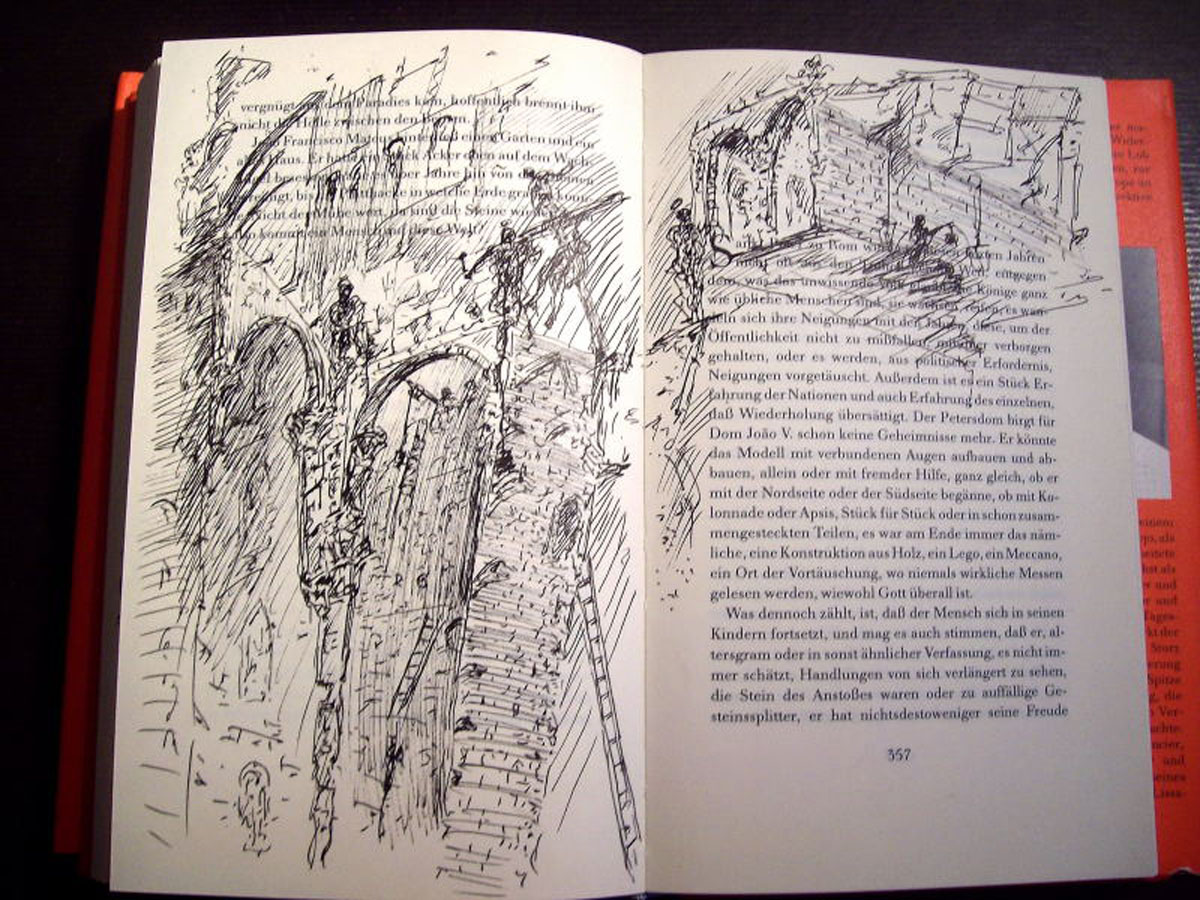 vergnügt aus dem Paradies kam, hoffentlich brennt ihm
nicht die Hölle zwischen den Beinen.
Francisco Marques hinterließ einen Garten und ein
altes Haus. Er hatte ein Stück Acker oben auf dem
Jahre hin von den Steinen
in welche Erde graben
Nicht der Mühe wert, da sind die Steine
kommt ein Mensch auf diese Welt?
zu Rom letzten Jahren
nicht oft aus den Welt entgegen
dem, was das unwissende Volk glaubt, die Könige ganz
wie übliche Menschen sind, sie wachsen, reifen, es wan-
deln sich ihre Neigungen mit den Jahren, diese, um der
Öffentlichkeit nicht zu mißfallen, mitunter verborgen
gehalten, oder es werden, aus politischer Erfordernis,
Neigungen vorgetäuscht. Außerdem ist es ein Stück Er-
fahrung der Nationen und auch Erfahrung des einzelnen,
daß Wiederholung übersättigt. Der Petersdom birgt für
Dom João V. schon keine Geheimnisse mehr. Er könnte
das Modell mit verbundenen Augen aufbauen und ab-
bauen, allein oder mit fremder Hilfe, ganz gleich, ob er
mit der Nordseite oder der Südseite begänne, ob mit Ko-
lonnade oder Apsis, Stück für Stück oder in schon zusam-
mengesteckten Teilen, es war am Ende immer das näm-
liche, eine Konstruktion aus Holz, ein Lego, ein Meccano,
ein Ort der Vortäuschung, wo niemals wirkliche Messen
gelesen werden, wiewohl Gott überall ist.
Was dennoch zählt, ist, daß der Mensch sich in seinen
Kindern fortsetzt, und mag es auch stimmen, daß er, al-
tersgram oder in sonst ähnlicher Verfassung, es nicht im-
mer schätzt, Handlungen von sich verlängert zu sehen,
die Stein des Anstoßes waren oder zu auffällige Ge-
steinssplitter, er hat nichtsdestoweniger seine Freude
357